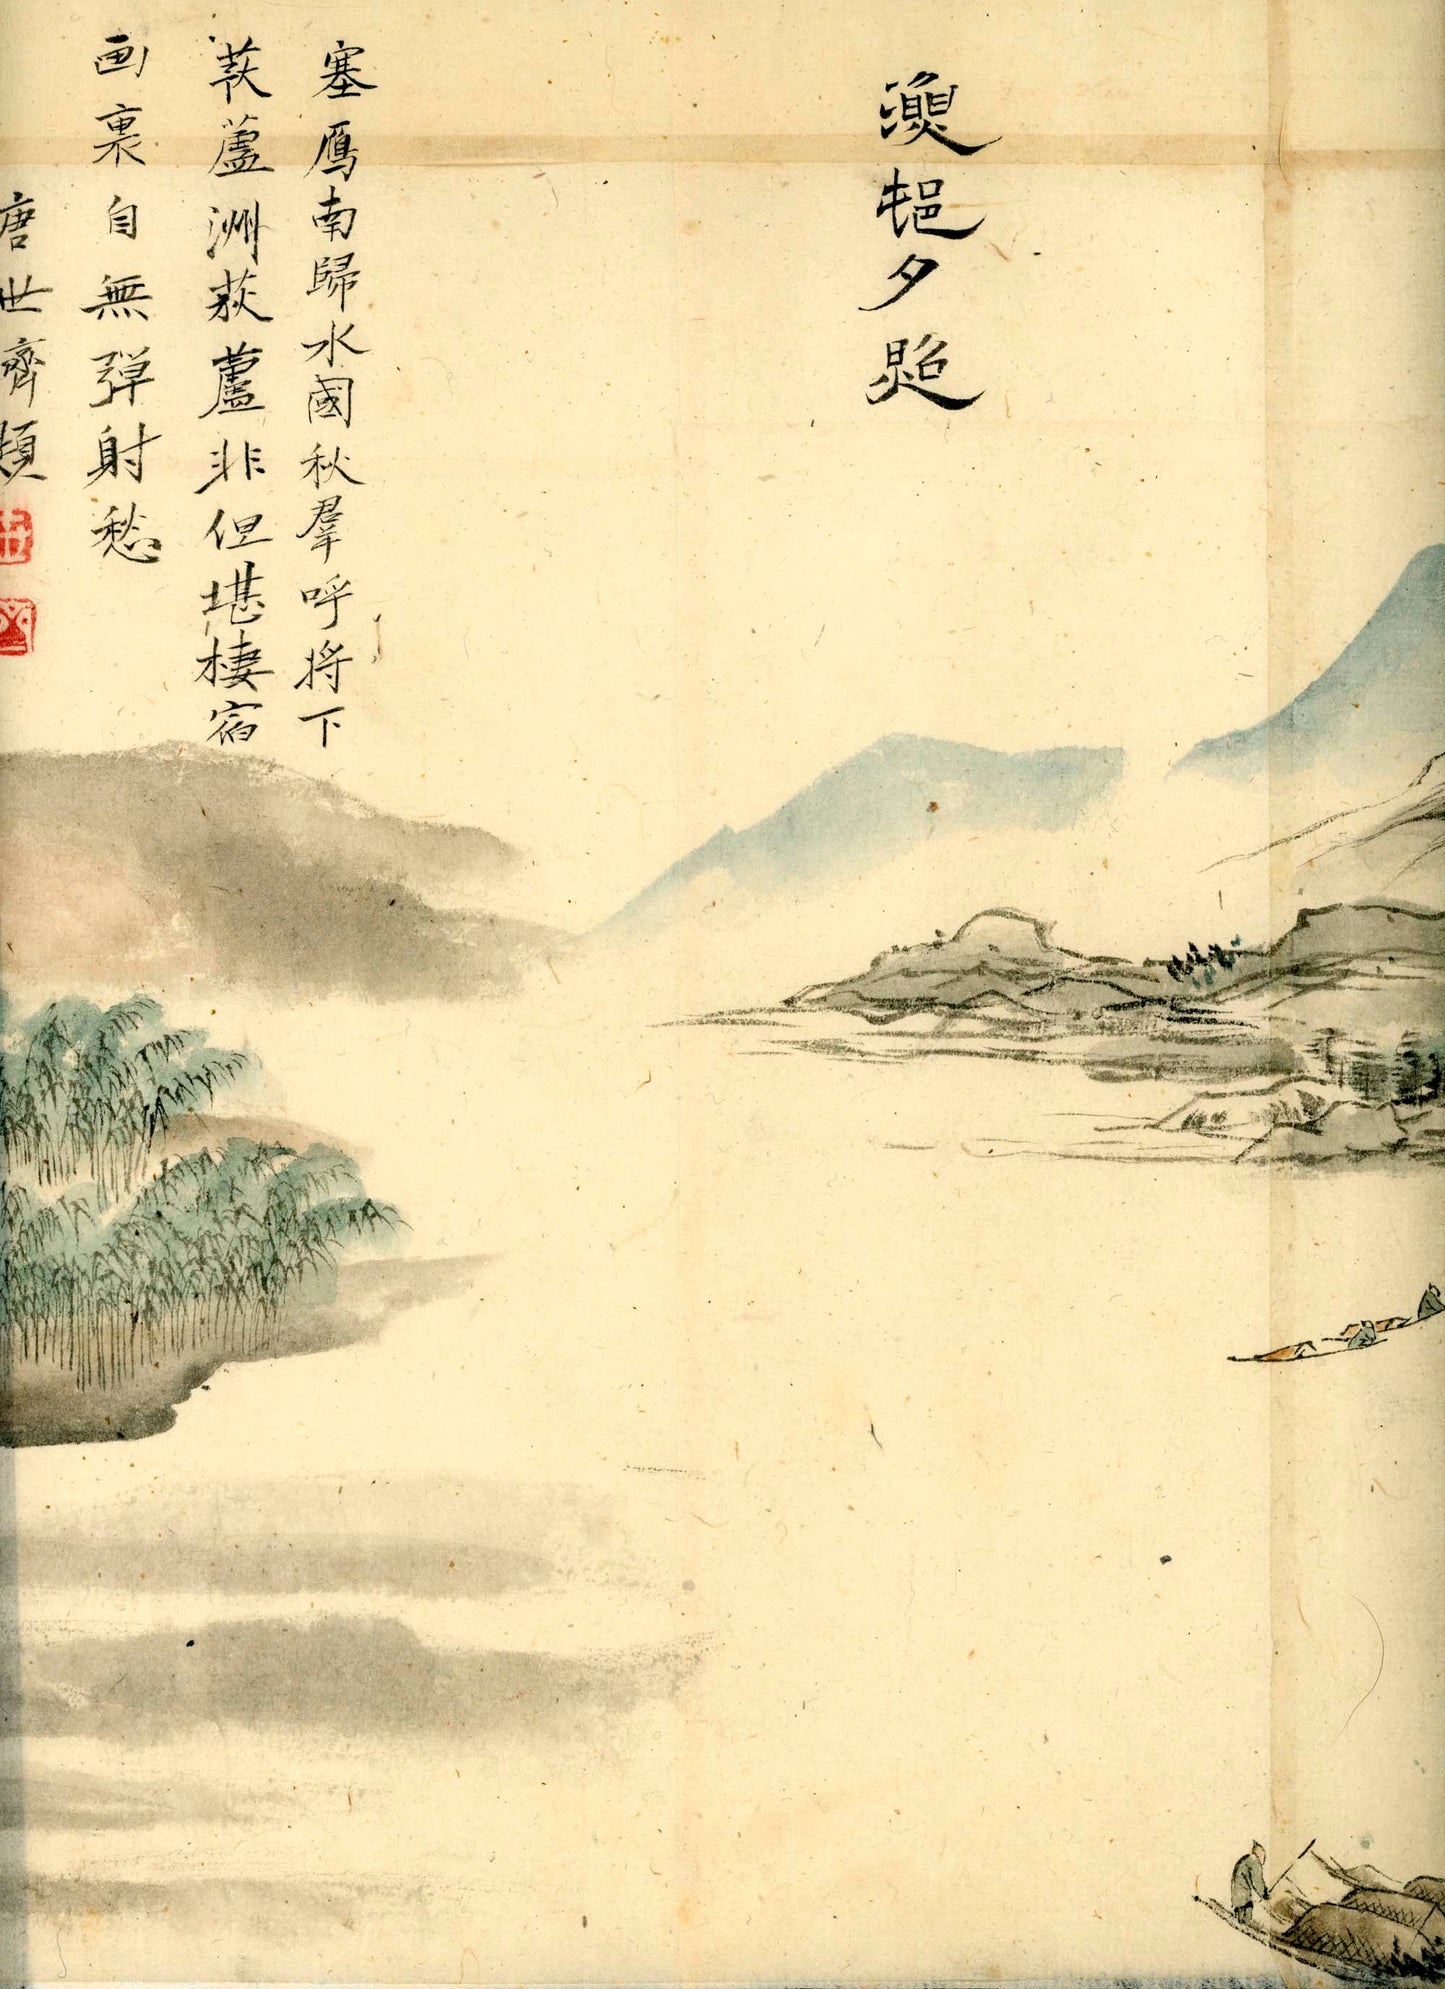 漁邨夕照
塞鴈南歸水國秋羣呼將下
荻蘆洲荻蘆非但堪棲宿
画裏自無弹射愁
唐世濟題